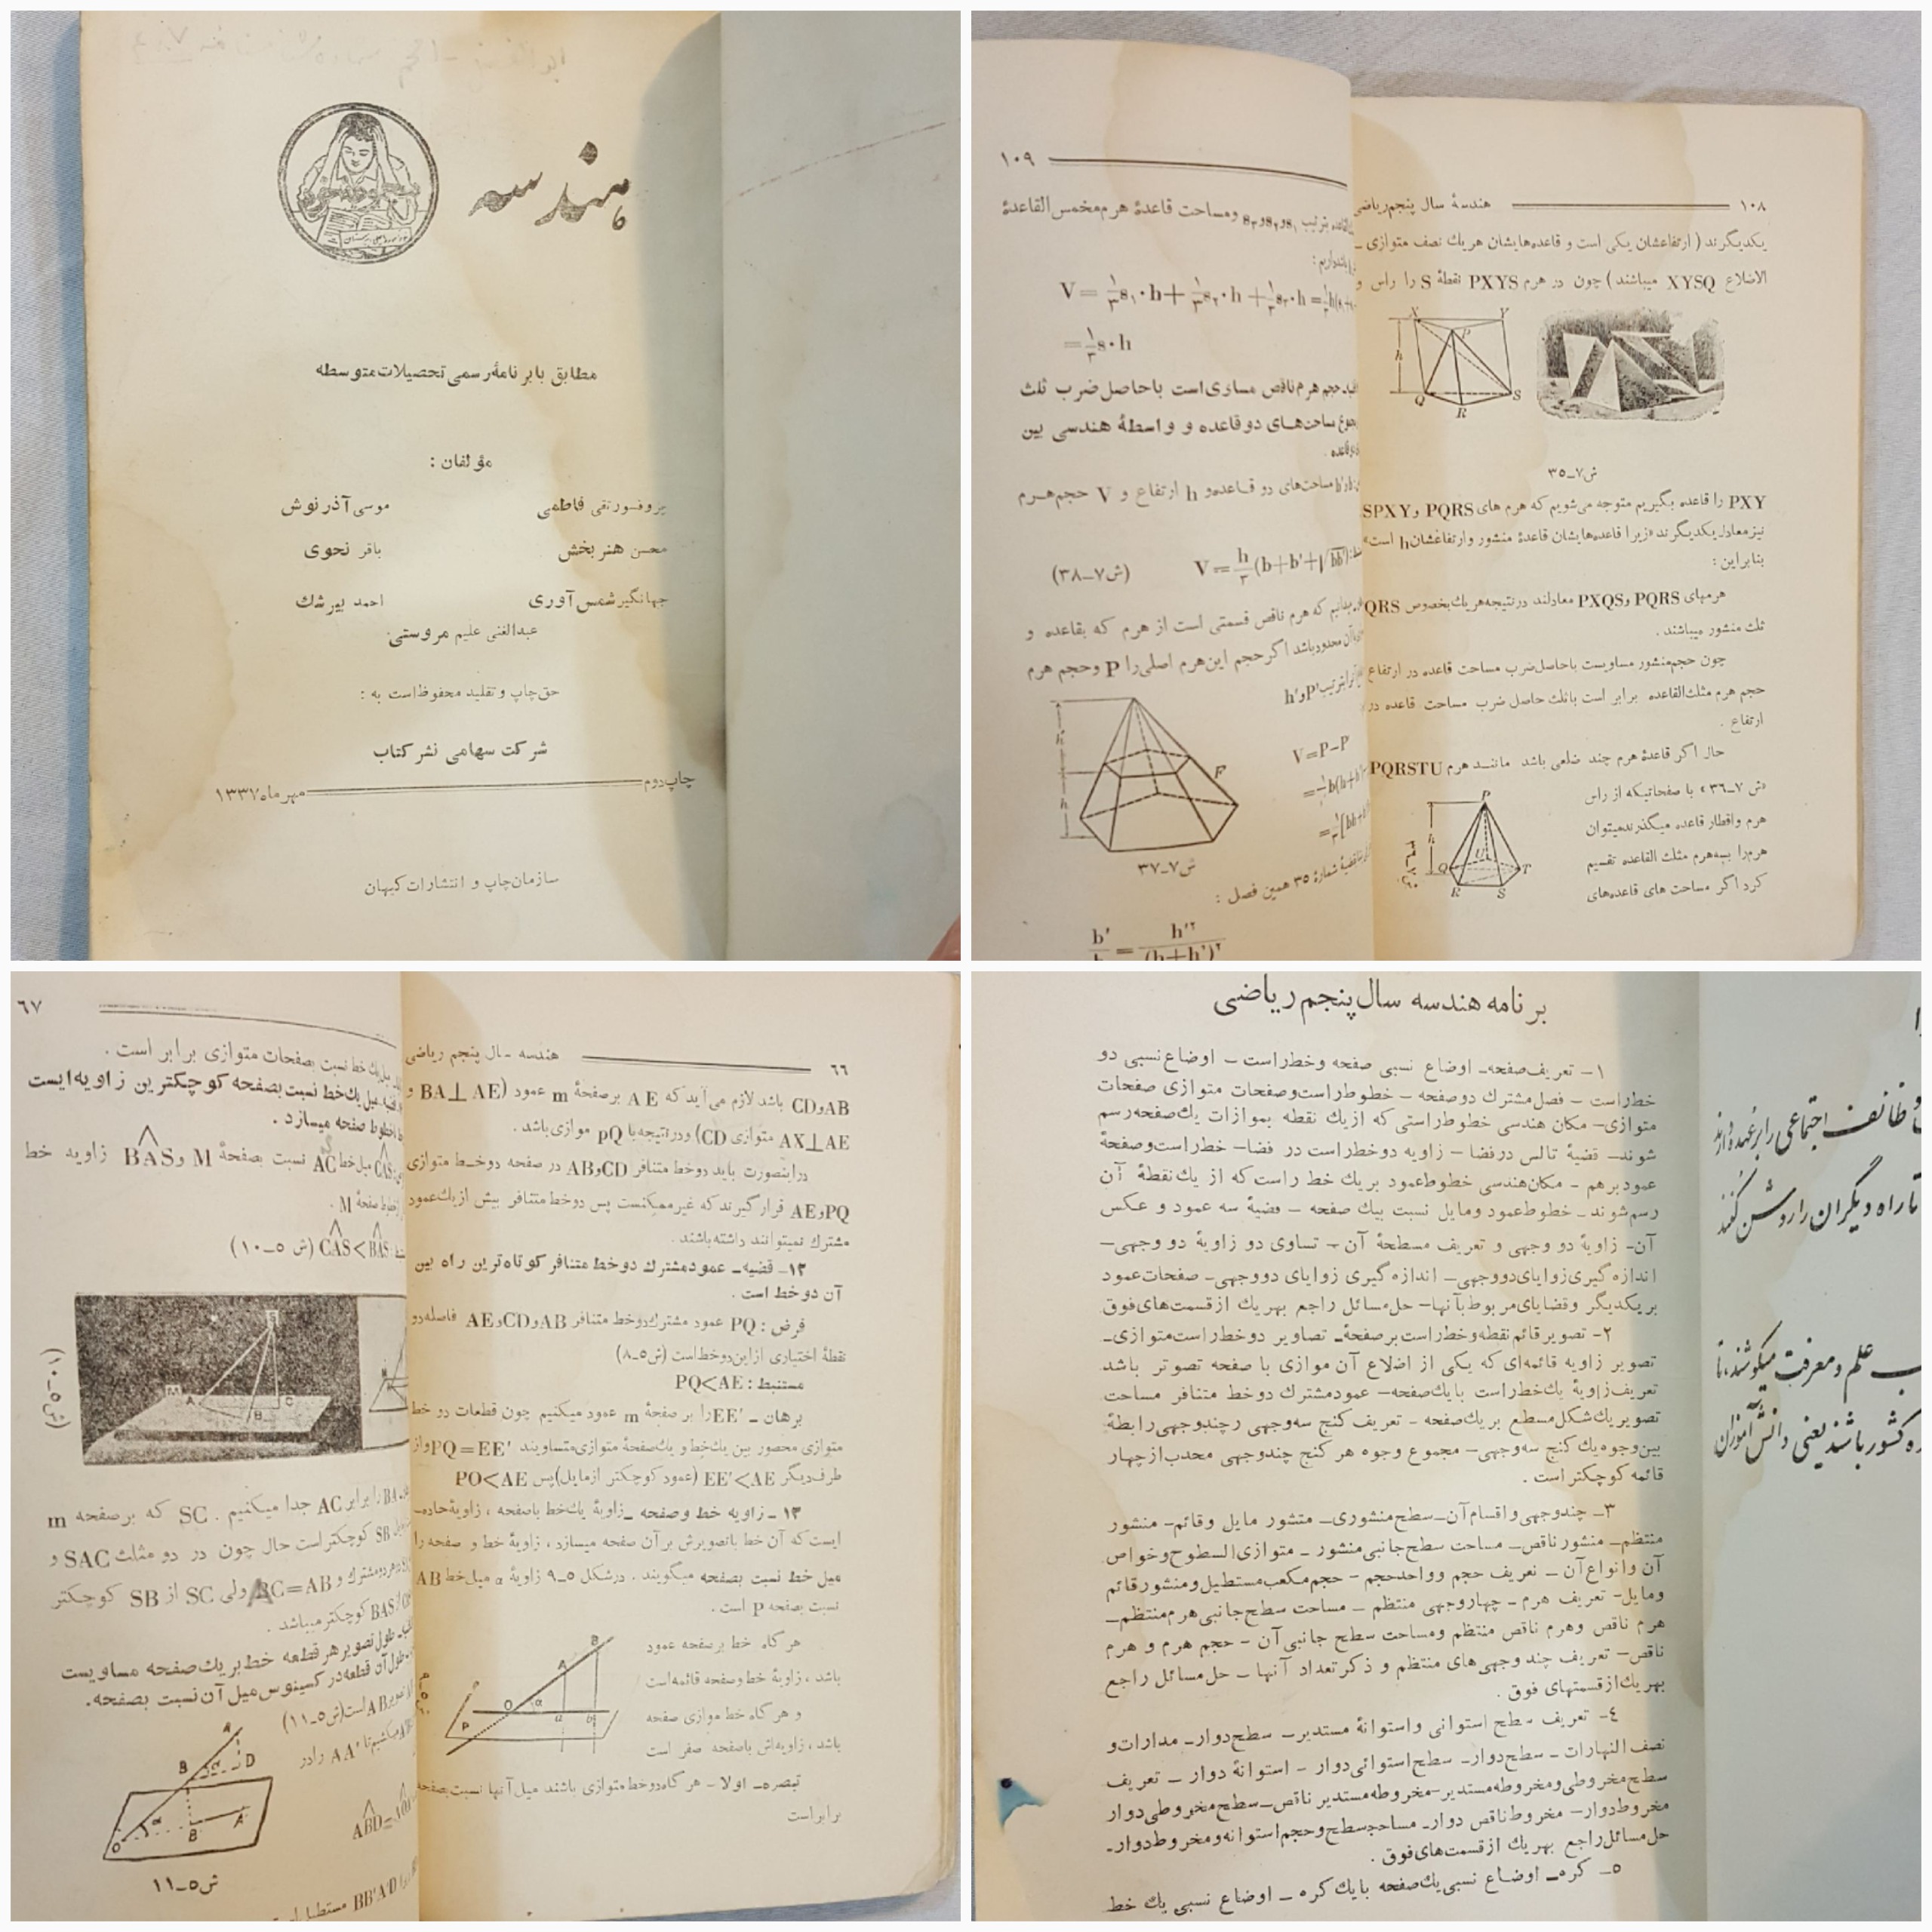 هندسه
مطابق با برنامهٔ رسمی تحصیلات متوسطه
مؤلفان :
پروفسور تقی فاطمی
موسی آذرنوش
محسن هنربخش
باقر نحوی
جهانگیر شمس آوری
احمد بیرشك
عبدالغنی علیم مروستی
حق چاپ و تقلید محفوظ است به :
شرکت سهامی نشر کتاب
چاپ دوم
مهر ماه ۱۳۳۷
سازمان چاپ و انتشارات کیهان
۱۰۸
هندسهٔ سال پنجم ریاضی
یکدیگرند ( ارتفاعشان یکی است و قاعده‌هایشان هریك نصف متوازی ـ
الاضلاع XYSQ میباشند ) چون در هرم PXYS نقطهٔ S را راس و
X Y P h Q R S
ش ۷ـ۳۵
PXY را قاعده بگیریم متوجه می‌شویم که هرم های PQRS و SPXY
نیز معادل یکدیگرند «زیرا قاعده‌هایشان قاعدهٔ منشور و ارتفاعشان h است»
بنابراین :
هرمهای PQRS و PXQS معادلند در نتیجه هریك بخصوص QRS
ثلث منشور میباشند .
چون حجم منشور مساویست با حاصل ضرب مساحت قاعده در ارتفاع
حجم هرم مثلث القاعده برابر است با ثلث حاصل ضرب مساحت قاعده در
ارتفاع .
حال اگر قاعدهٔ هرم چند ضلعی باشد مانند هرم PQRSTU
«ش ۷ـ۳۶» با صفحاتیکه از راس
هرم و اقطار قاعده میگذرند میتوان
هرم را بسه هرم مثلث القاعده تقسیم
کرد اگر مساحت های قاعده‌های
P h Q U T R S
۱۰۹
بترتیب s۱ و s۲ و s۳ و مساحت قاعدهٔ هرم مخمس القاعدهٔ
V = ۱/۳ s۱·h + ۱/۳ s۲·h + ۱/۳ s۳·h =
= ۱/۳ s·h
حجم هرم ناقص مساوی است با حاصل ضرب ثلث
ساحت‌های دو قاعده و واسطهٔ هندسی بین
مساحت‌های دو قاعده و h ارتفاع و V حجم هرم
V = h/۳ (b+b'+√bb') (ش ۷ـ۳۸)
که هرم ناقص قسمتی است از هرم که بقاعده و
محدود باشد اگر حجم این هرم اصلی را P و حجم هرم
P' و h'
V=P-P
h' h F
ش ۷ـ۳۷
شمارهٔ ۳۵ همین فصل :
b'/b = h'۲/(h+h')۲
٦٦
هندسه ـ سال پنجم ریاضی
AB و CD باشد لازم می‌آید که AE بر صفحهٔ m عمود (BA⊥AE و
AX⊥AE متوازی CD) و در نتیجه با PQ موازی باشد .
در اینصورت باید دو خط متنافر CD و AB در صفحه دو خط متوازی
PQ و AE قرار گیرند که غیر ممکنست پس دو خط متنافر بیش از یك عمود
مشترك نمیتوانند داشته باشند .
۱۲ـ قضیه ـ عمود مشترك دو خط متنافر کوتاه‌ترین راه بین
آن دو خط است .
فرض : PQ عمود مشترك دو خط متنافر AB و CD و AE فاصله دو
نقطهٔ اختیاری از این دو خط است (ش ۵ـ۸)
مستنبط : PQ<AE
برهان ـ EE' را بر صفحهٔ m عمود میکنیم چون قطعات دو خط
متوازی محصور بین یك خط و یك صفحهٔ متوازی متساویند PQ=EE' و از
طرف دیگر EE'<AE (عمود کوچکتر از مایل) پس PO<AE
۱۳ ـ زاویه خط و صفحه ـ زاویهٔ یك خط با صفحه ، زاویهٔ حاده‌ـ
ایست که آن خط با تصویرش بر آن صفحه میسازد ، زاویهٔ خط و صفحه را
میل خط نسبت بصفحه میگویند . در شکل ۵ـ۹ زاویهٔ α میل خط AB
نسبت بصفحه P است .
هر گاه خط بر صفحه عمود
باشد ، زاویهٔ خط و صفحه قائمه است
و هر گاه خط موازی صفحه
باشد ، زاویه‌اش با صفحه صفر است
B A O α a b P
تبصره ـ اولا ـ هر گاه دو خط متوازی باشند میل آنها نسبت بصفحه
برابر است
٦٧
یك خط نسبت بصفحات متوازی برابر است .
میل یك خط نسبت بصفحه کوچکترین زاویه ایست
خطوط صفحه میسازد .
میل خط AC نسبت بصفحهٔ M و BAS زاویه خط
خطوط صفحهٔ M .
CAS<BAS (ش ۵ـ۱۰)
S M A B C
(ش ۵ـ۱۰)
BA را برابر AC جدا میکنیم . SC که بر صفحه m
SB کوچکتر است حال چون در دو مثلث SAC و
مشترك و AC=AB ولی SC از SB کوچکتر
BAS کوچکتر میباشد .
طول تصویر هر قطعه خط بر یك صفحه مساویست
طول آن قطعه در کسینوس میل آن نسبت بصفحه .
AB است (ش ۵ـ۱۱)
AA' را در
A B D α O B' A'
ش ۵ـ۱۱
BB'A'D مستطیل
برنامه هندسه سال پنجم ریاضی
۱ـ تعریف صفحه ـ اوضاع نسبی صفحه و خط راست ـ اوضاع نسبی دو
خط راست ـ فصل مشترك دو صفحه ـ خطوط راست و صفحات متوازی صفحات
متوازی ـ مکان هندسی خطوط راستی که از یك نقطه بموازات یك صفحه رسم
شوند ـ قضیهٔ تالس در فضا ـ زاویه دو خط راست در فضا ـ خط راست و صفحهٔ
عمود بر هم ـ مکان هندسی خطوط عمود بر یك خط راست که از یك نقطهٔ آن
رسم شوند ـ خطوط عمود و مایل نسبت بیك صفحه ـ قضیهٔ سه عمود و عکس
آن ـ زاویهٔ دو وجهی و تعریف مسطحهٔ آن ـ تساوی دو زاویهٔ دو وجهی ـ
اندازه گیری زوایای دو وجهی ـ اندازه گیری زوایای دو وجهی ـ صفحات عمود
بر یکدیگر و قضایای مربوط بآنها ـ حل مسائل راجع بهر یك از قسمت‌های فوق
۲ـ تصویر قائم نقطه و خط راست بر صفحه ـ تصاویر دو خط راست متوازی ـ
تصویر زاویه قائمه‌ای که یکی از اضلاع آن موازی با صفحه تصویر باشد
تعریف زاویهٔ یك خط راست با یك صفحه ـ عمود مشترك دو خط متنافر مساحت
تصویر یك شکل مسطح بر یك صفحه ـ تعریف کنج سه وجهی و چند وجهی رابطهٔ
بین وجوه یك کنج سه وجهی ـ مجموع وجوه هر کنج چند وجهی محدب از چهار
قائمه کوچکتر است .
۳ـ چند وجهی و اقسام آن ـ سطح منشوری ـ منشور مایل و قائم ـ منشور
منتظم ـ منشور ناقص ـ مساحت سطح جانبی منشور ـ متوازی السطوح و خواص
آن و انواع آن ـ تعریف حجم و واحد حجم ـ حجم مکعب مستطیل و منشور قائم
و مایل ـ تعریف هرم ـ چهار وجهی منتظم ـ مساحت سطح جانبی هرم منتظم ـ
هرم ناقص و هرم ناقص منتظم و مساحت سطح جانبی آن ـ حجم هرم و هرم
ناقص ـ تعریف چند وجهی های منتظم و ذکر تعداد آنها ـ حل مسائل راجع
بهر یك از قسمتهای فوق .
٤ـ تعریف سطح استوانی و استوانهٔ مستدیر ـ سطح دوار ـ مدارات و
نصف النهارات ـ سطح دوار ـ سطح استوانی دوار ـ استوانهٔ دوار ـ تعریف
سطح مخروطی و مخروطه مستدیر ـ مخروطه مستدیر ناقص ـ سطح مخروطی دوار
مخروط دوار ـ مخروط ناقص دوار ـ مساحت سطح و حجم استوانه و مخروط دوار ـ
حل مسائل راجع بهر یك از قسمت‌های فوق .
۵ـ کره ـ اوضاع نسبی یك صفحه با یك کره ـ اوضاع نسبی یك خط
وظائف اجتماعی را بر عهده دارند
تا راه دیگران را روشن کنند
علم و معرفت میکوشند، تا
کشور باشند یعنی دانش آموزان